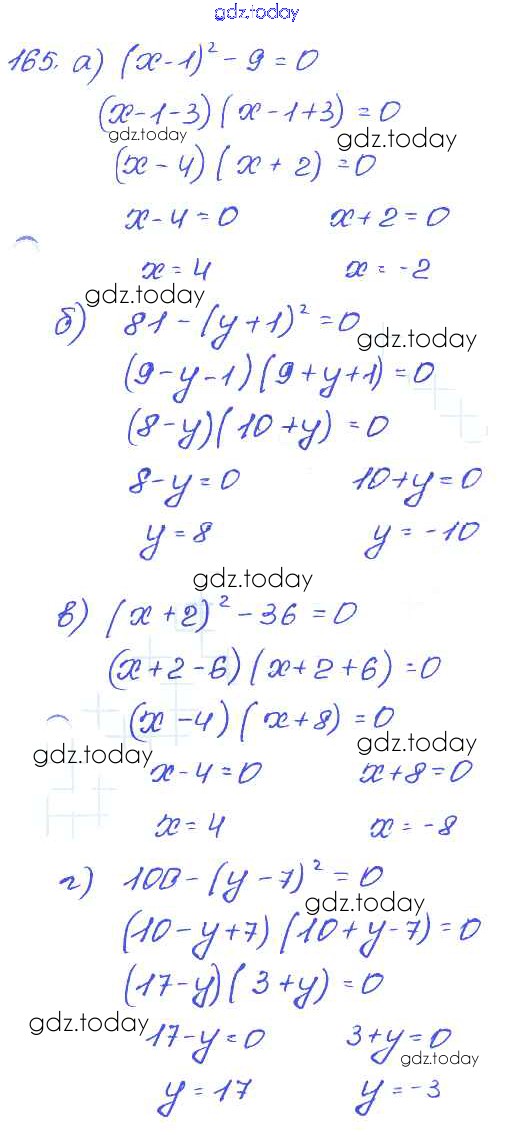 gdz.today
165. а) (x-1)² - 9 = 0
(x-1-3)(x-1+3) = 0
gdz.today gdz.today
(x-4)(x+2) = 0
x-4=0 x+2=0
x=4 x=-2
gdz.today
б) 81-(y+1)² = 0
gdz.today
(9-y-1)(9+y+1)=0
(8-y)(10+y) = 0
8-y=0 10+y=0
y=8 y=-10
gdz.today
в) (x+2)² - 36 = 0
(x+2-6)(x+2+6)=0
(x-4)(x+8)=0
gdz.today gdz.today
x-4=0 x+8=0
x=4 x=-8
г) 100-(y-7)² = 0
gdz.today
(10-y+7)(10+y-7)=0
(17-y)(3+y)=0
gdz.today
17-y=0 3+y=0
gdz.today
y=17 y=-3